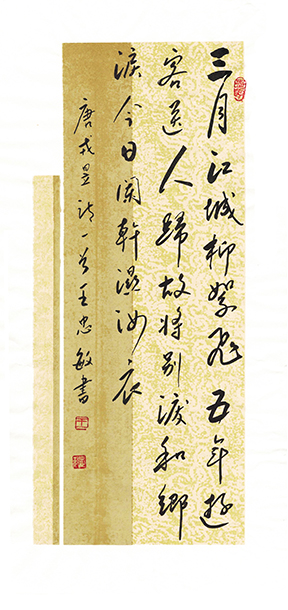 三月江城柳絮飛五年遊
客送人歸故将别淚和鄉
淚今日闌干濕汝衣
唐戎昱詩一首王忠敏書